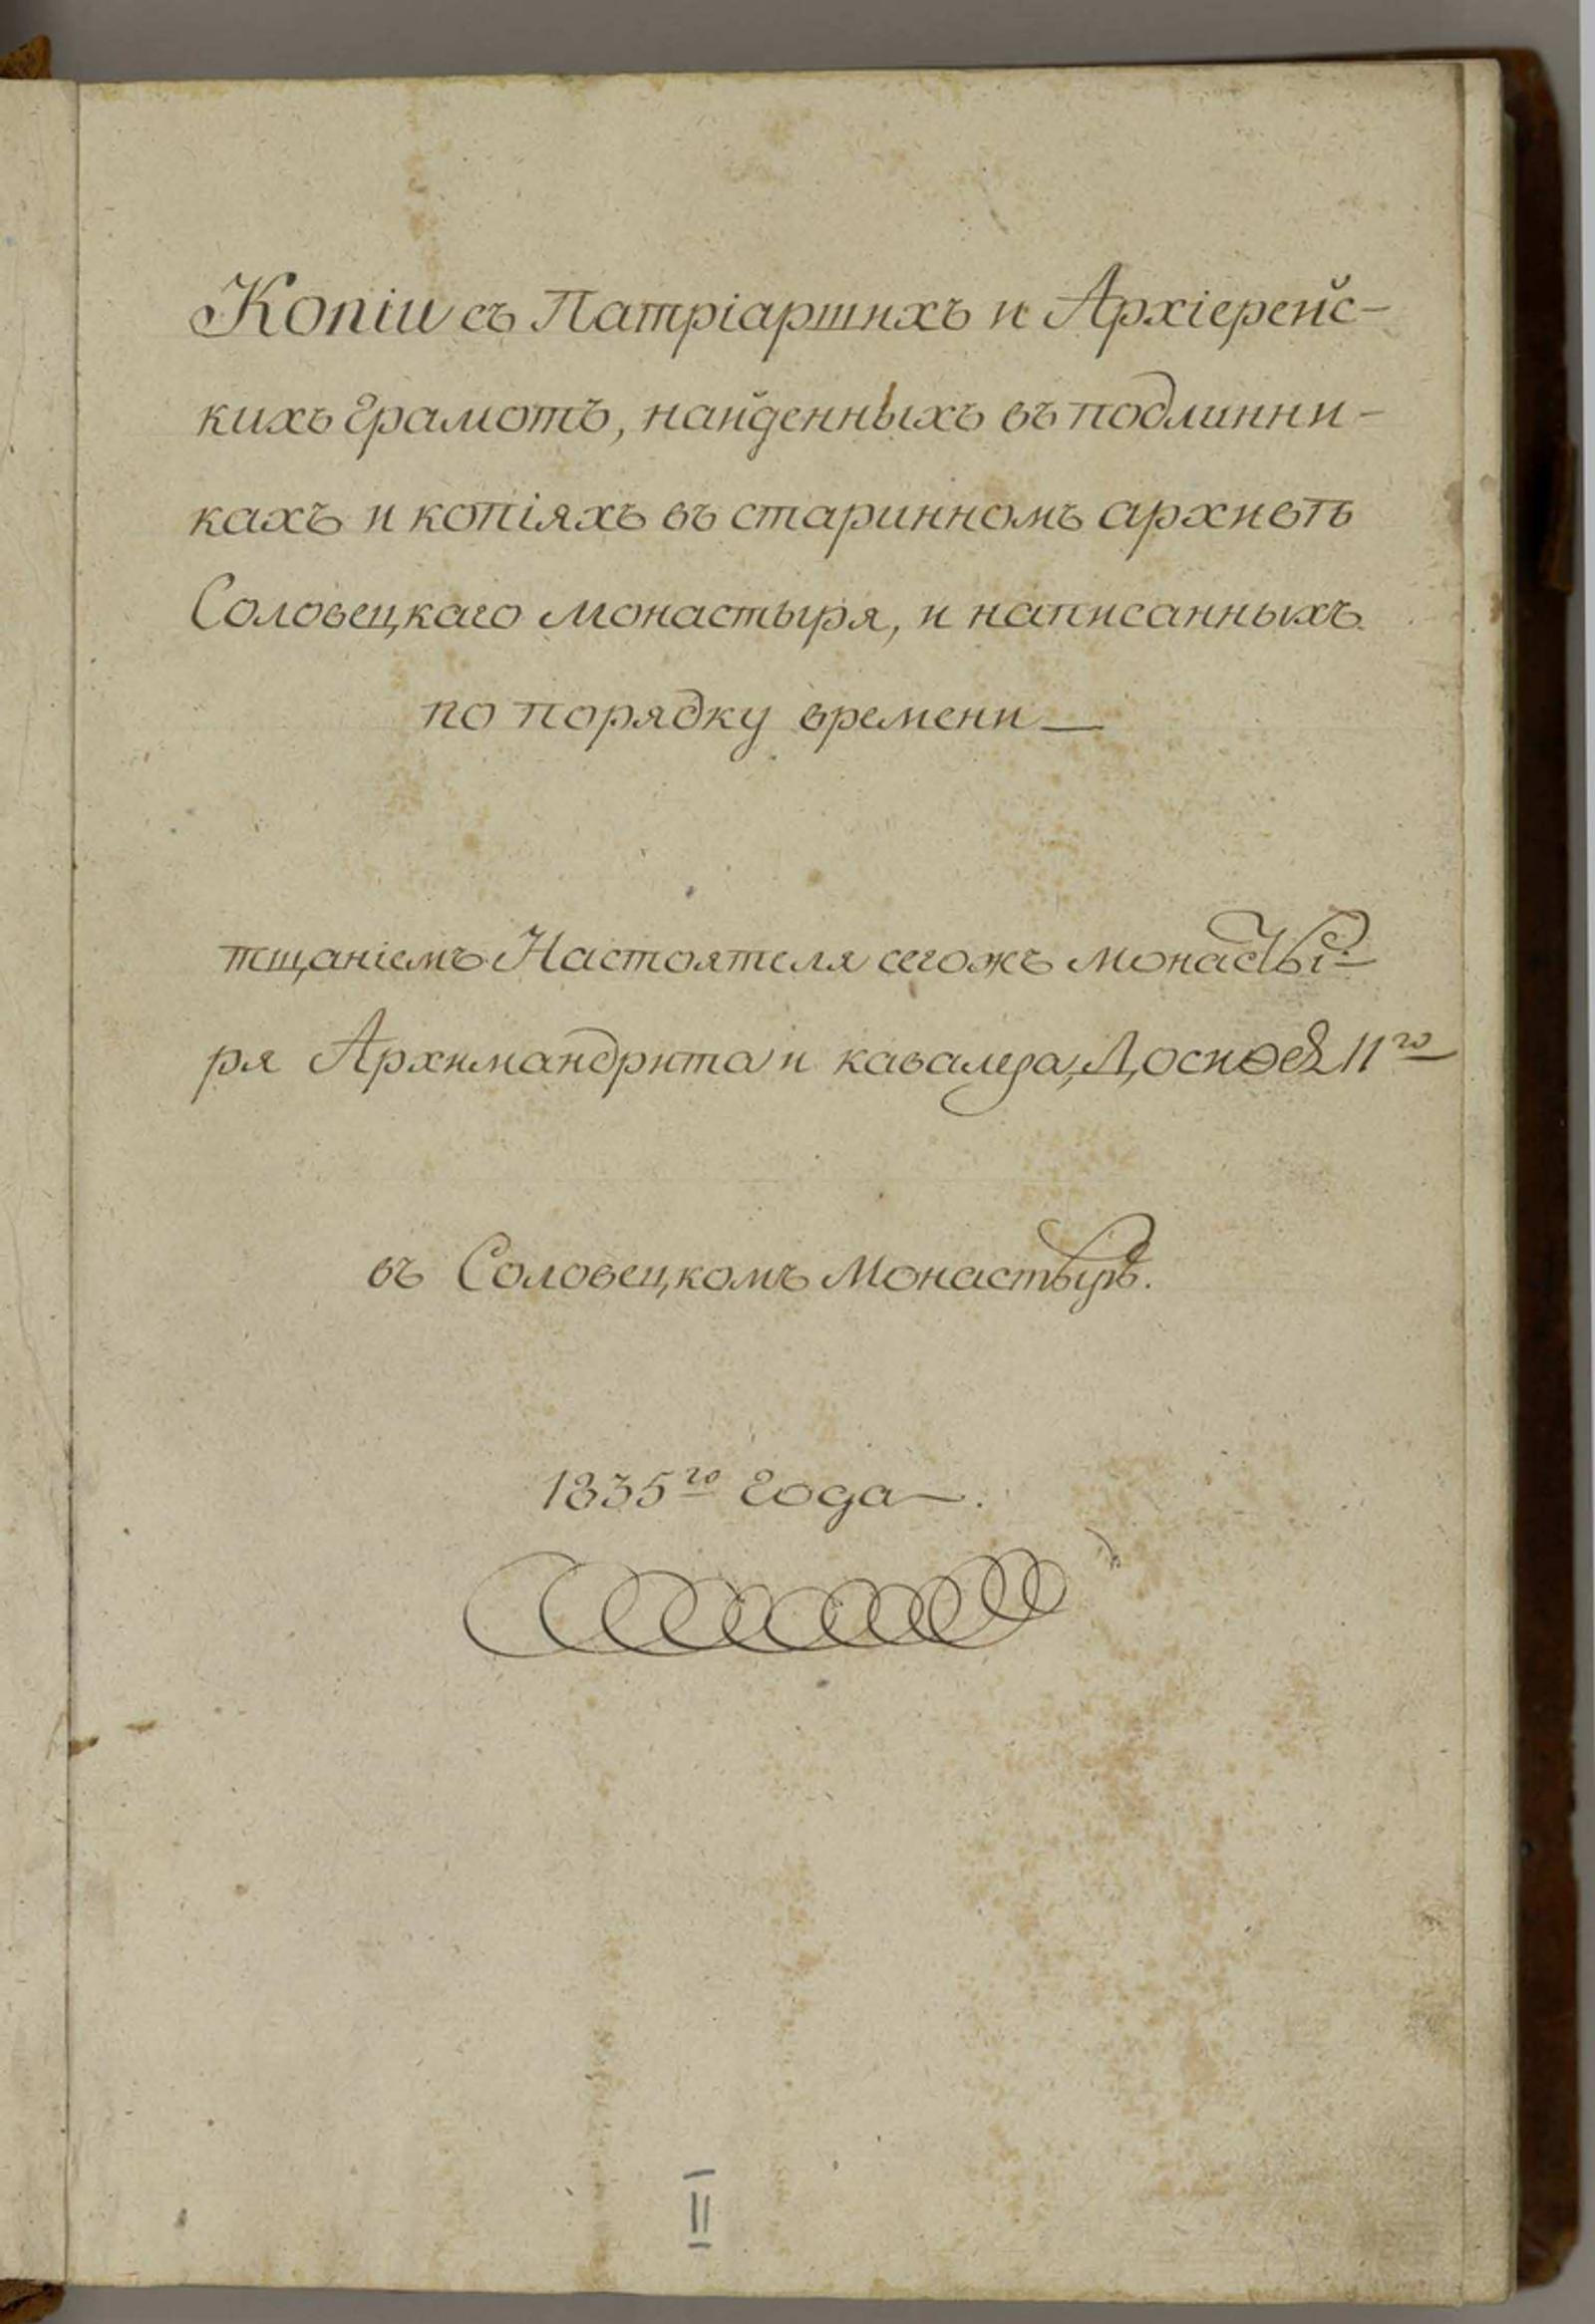 Копіи съ Патріаршихъ и Архіерейс-
кихъ грамотъ, найденныхъ въ подлинни-
кахъ и копіяхъ въ старинномъ архивѣ
Соловецкаго монастыря, и написанныхъ
по порядку времени —
тщаніемъ Настоятеля сегожъ монасты-
ря Архимандрита и кавалера, Досиѳея IIго
въ Соловецкомъ Монастырѣ.
1835го года —.
II